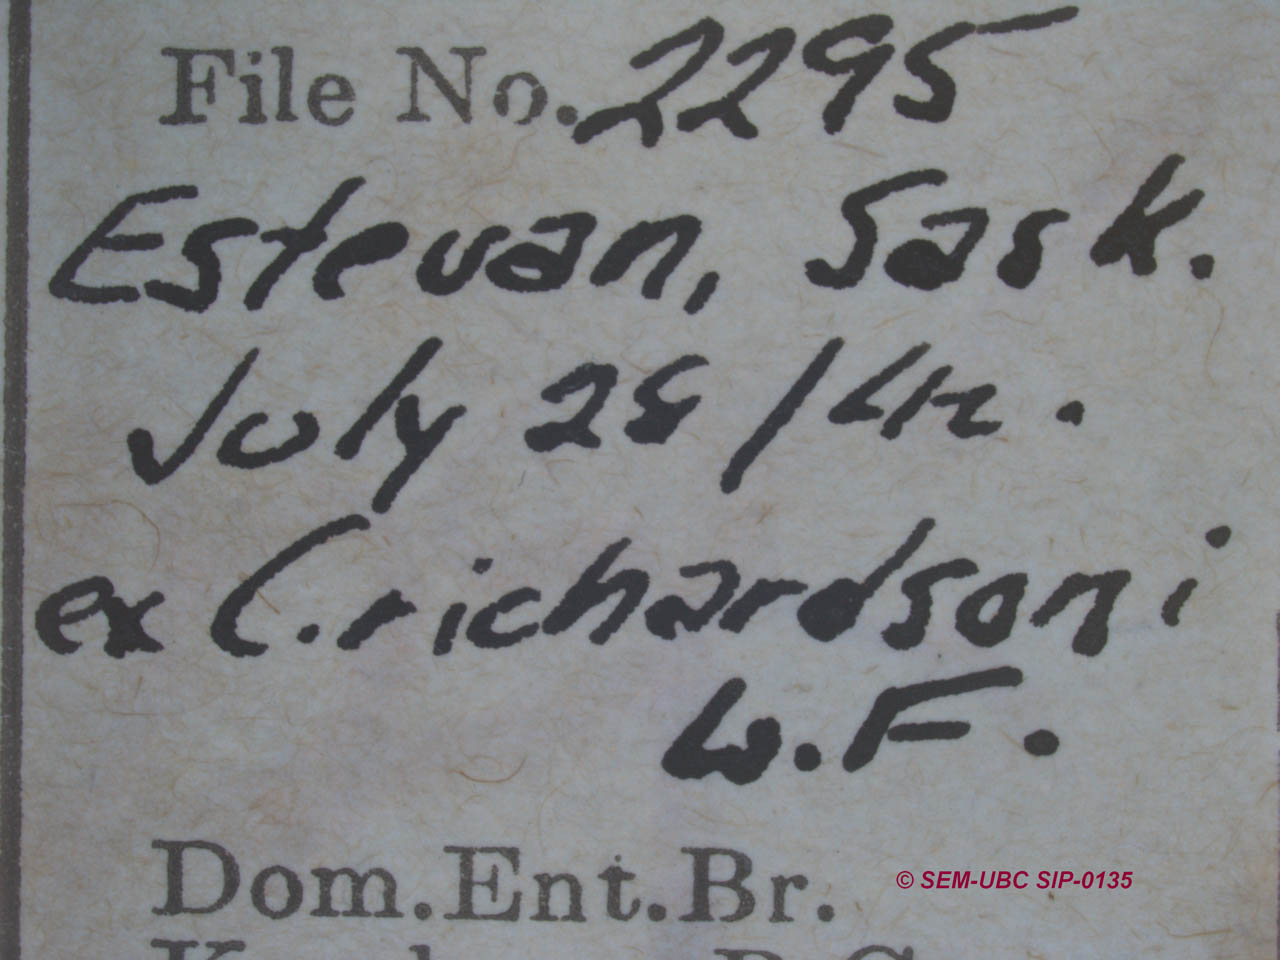 File No. 2295
Estevan, Sask.
July 28/42.
ex C. richardsoni
W.F.
Dom. Ent. Br.
© SEM-UBC SIP-0135